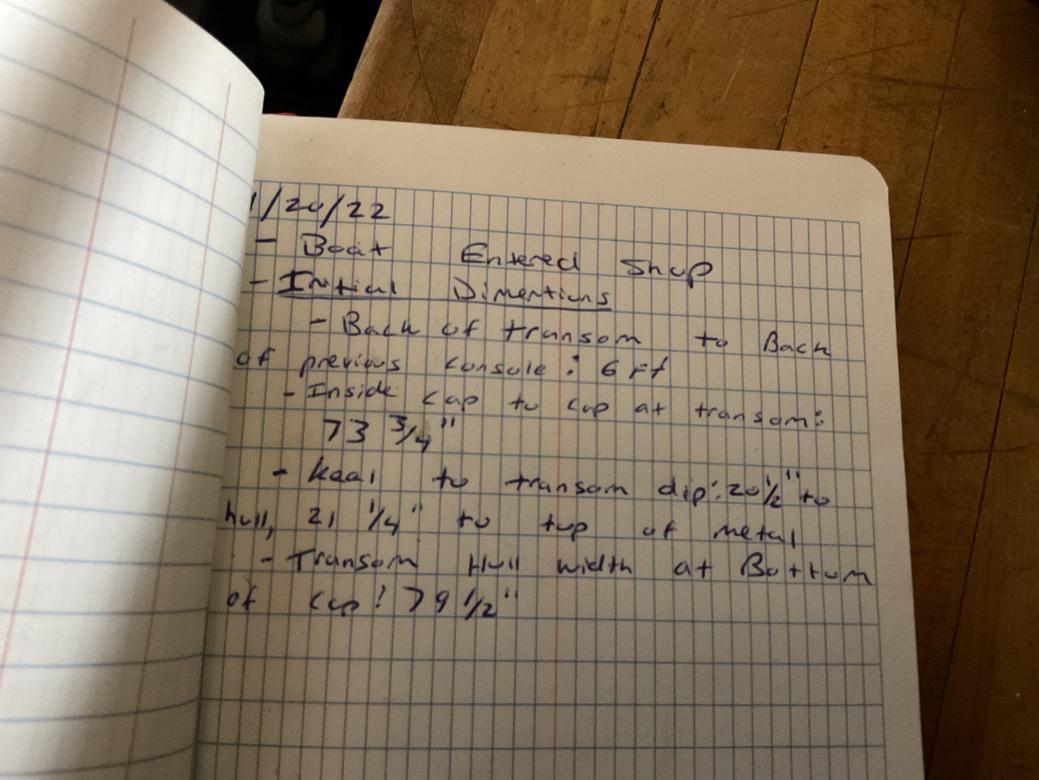 1/20/22
- Boat Entered Shop
- Initial Dimentions
- Back of transom to Back
of previous console: 6 Ft
- Inside cap to cap at transom:
73 3/4"
- Kaal to transom dip: 20 1/2" to
hull, 21 1/4" to top of metal
- Transom Hull width at Bottom
of cap: 79 1/2"